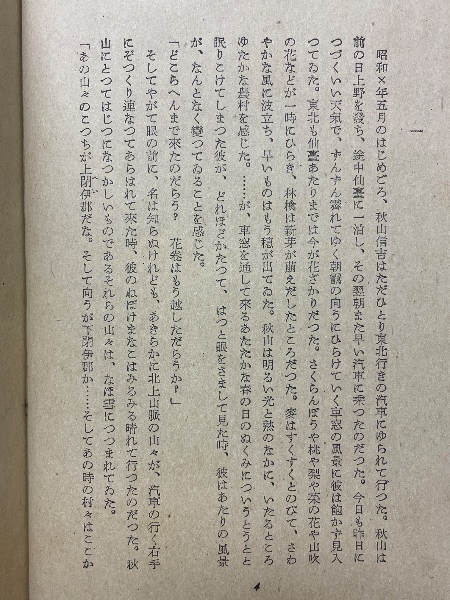 一
昭和×年五月のはじめごろ、秋山信吉はただひとり東北行きの汽車にゆられて行つた。秋山は
前の日上野を發ち、途中仙臺に一泊し、その翌朝また早い汽車に乘つたのだつた。今日も昨日に
つづくいい天氣で、ずんずん霽れてゆく朝靄の向うにひらけていく車窓の風景に彼は飽かず見入
つてゐた。東北も仙臺あたりまでは今が花ざかりだつた。さくらんぼうや桃や梨や菜の花や山吹
の花などが一時にひらき、林檎は新芽が萠えだしたところだつた。麥はすくすくとのびて、さわ
やかな風に波立ち、早いものはもう穗が出てゐた。秋山は明るい光と熱のなかに、いたるところ
ゆたかな農村を感じた。……が、車窓を通して來るあたたかな春の日のぬくみについうとうとと
眠りこけてしまつた彼が、どれほどかたつて、はつと眼をさまして見た時、彼はあたりの風景
が、なんとなく變つてゐることを感じた。
「どこらへんまで來たのだらう？　花卷はもう越しただらうか？」
そしてやがて眼の前に、名は知らぬけれども、あきらかに北上山脈の山々が、汽車の行く右手
にぞつくり連なつてあらはれて來た時、彼のねぼけまなこはみるみる晴れて行つたのだつた。秋
山にとつてはじつになつかしいものであるそれらの山々は、なほ雲につつまれてゐた。
「あの山々のこつちが上閉伊郡だな。そして向うが下閉伊郡か……そしてあの時の村々はここか
4